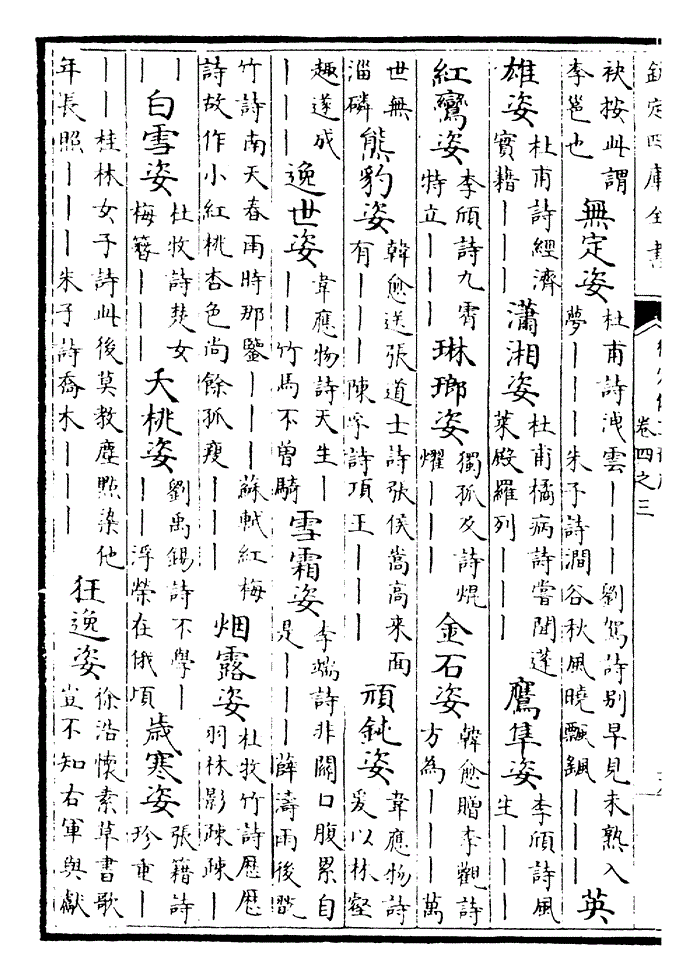 欽定四庫全書
卷四之三
袂按此謂李邕也 無定姿 杜甫詩洩雲———劉駕詩別早見未熟入夢———朱子詩澗谷秋風曉飄颻——— 英
雄姿 杜甫詩經濟實藉—— 瀟湘姿 杜甫橘病詩嘗聞蓬萊殿羅列——— 鷹隼姿 李頎詩風生———
紅鸞姿 李頎詩九霄特立——— 琳瑯姿 獨孤及詩焜耀——— 金石姿 韓愈贈李觀詩萬方為———
世無淄磷 熊豹姿 韓愈送張道士詩張侯嵩高来面有———陳孚詩項王——— 頑鈍姿 韋應物詩爰以林壑
趣遂成——— 逸世姿 韋應物詩天生———竹馬不曾騎 雪霜姿 李端詩非關口腹累自是———薛濤雨後翫
竹詩南天春雨時那鑒———蘇軾紅梅詩故作小紅桃杏色尚餘孤瘦——— 烟露姿 杜牧竹詩歴歴羽林影疎疎—
—— 白雪姿 杜牧詩楚女梅簪——— 夭桃姿 劉禹錫詩不學———浮榮在俄頃 歲寒姿 張籍詩珍重—
——桂林女子詩此後莫教塵點染他年長照———朱子詩喬木——— 狂逸姿 徐浩懷素草書歌豈不知右軍與獻